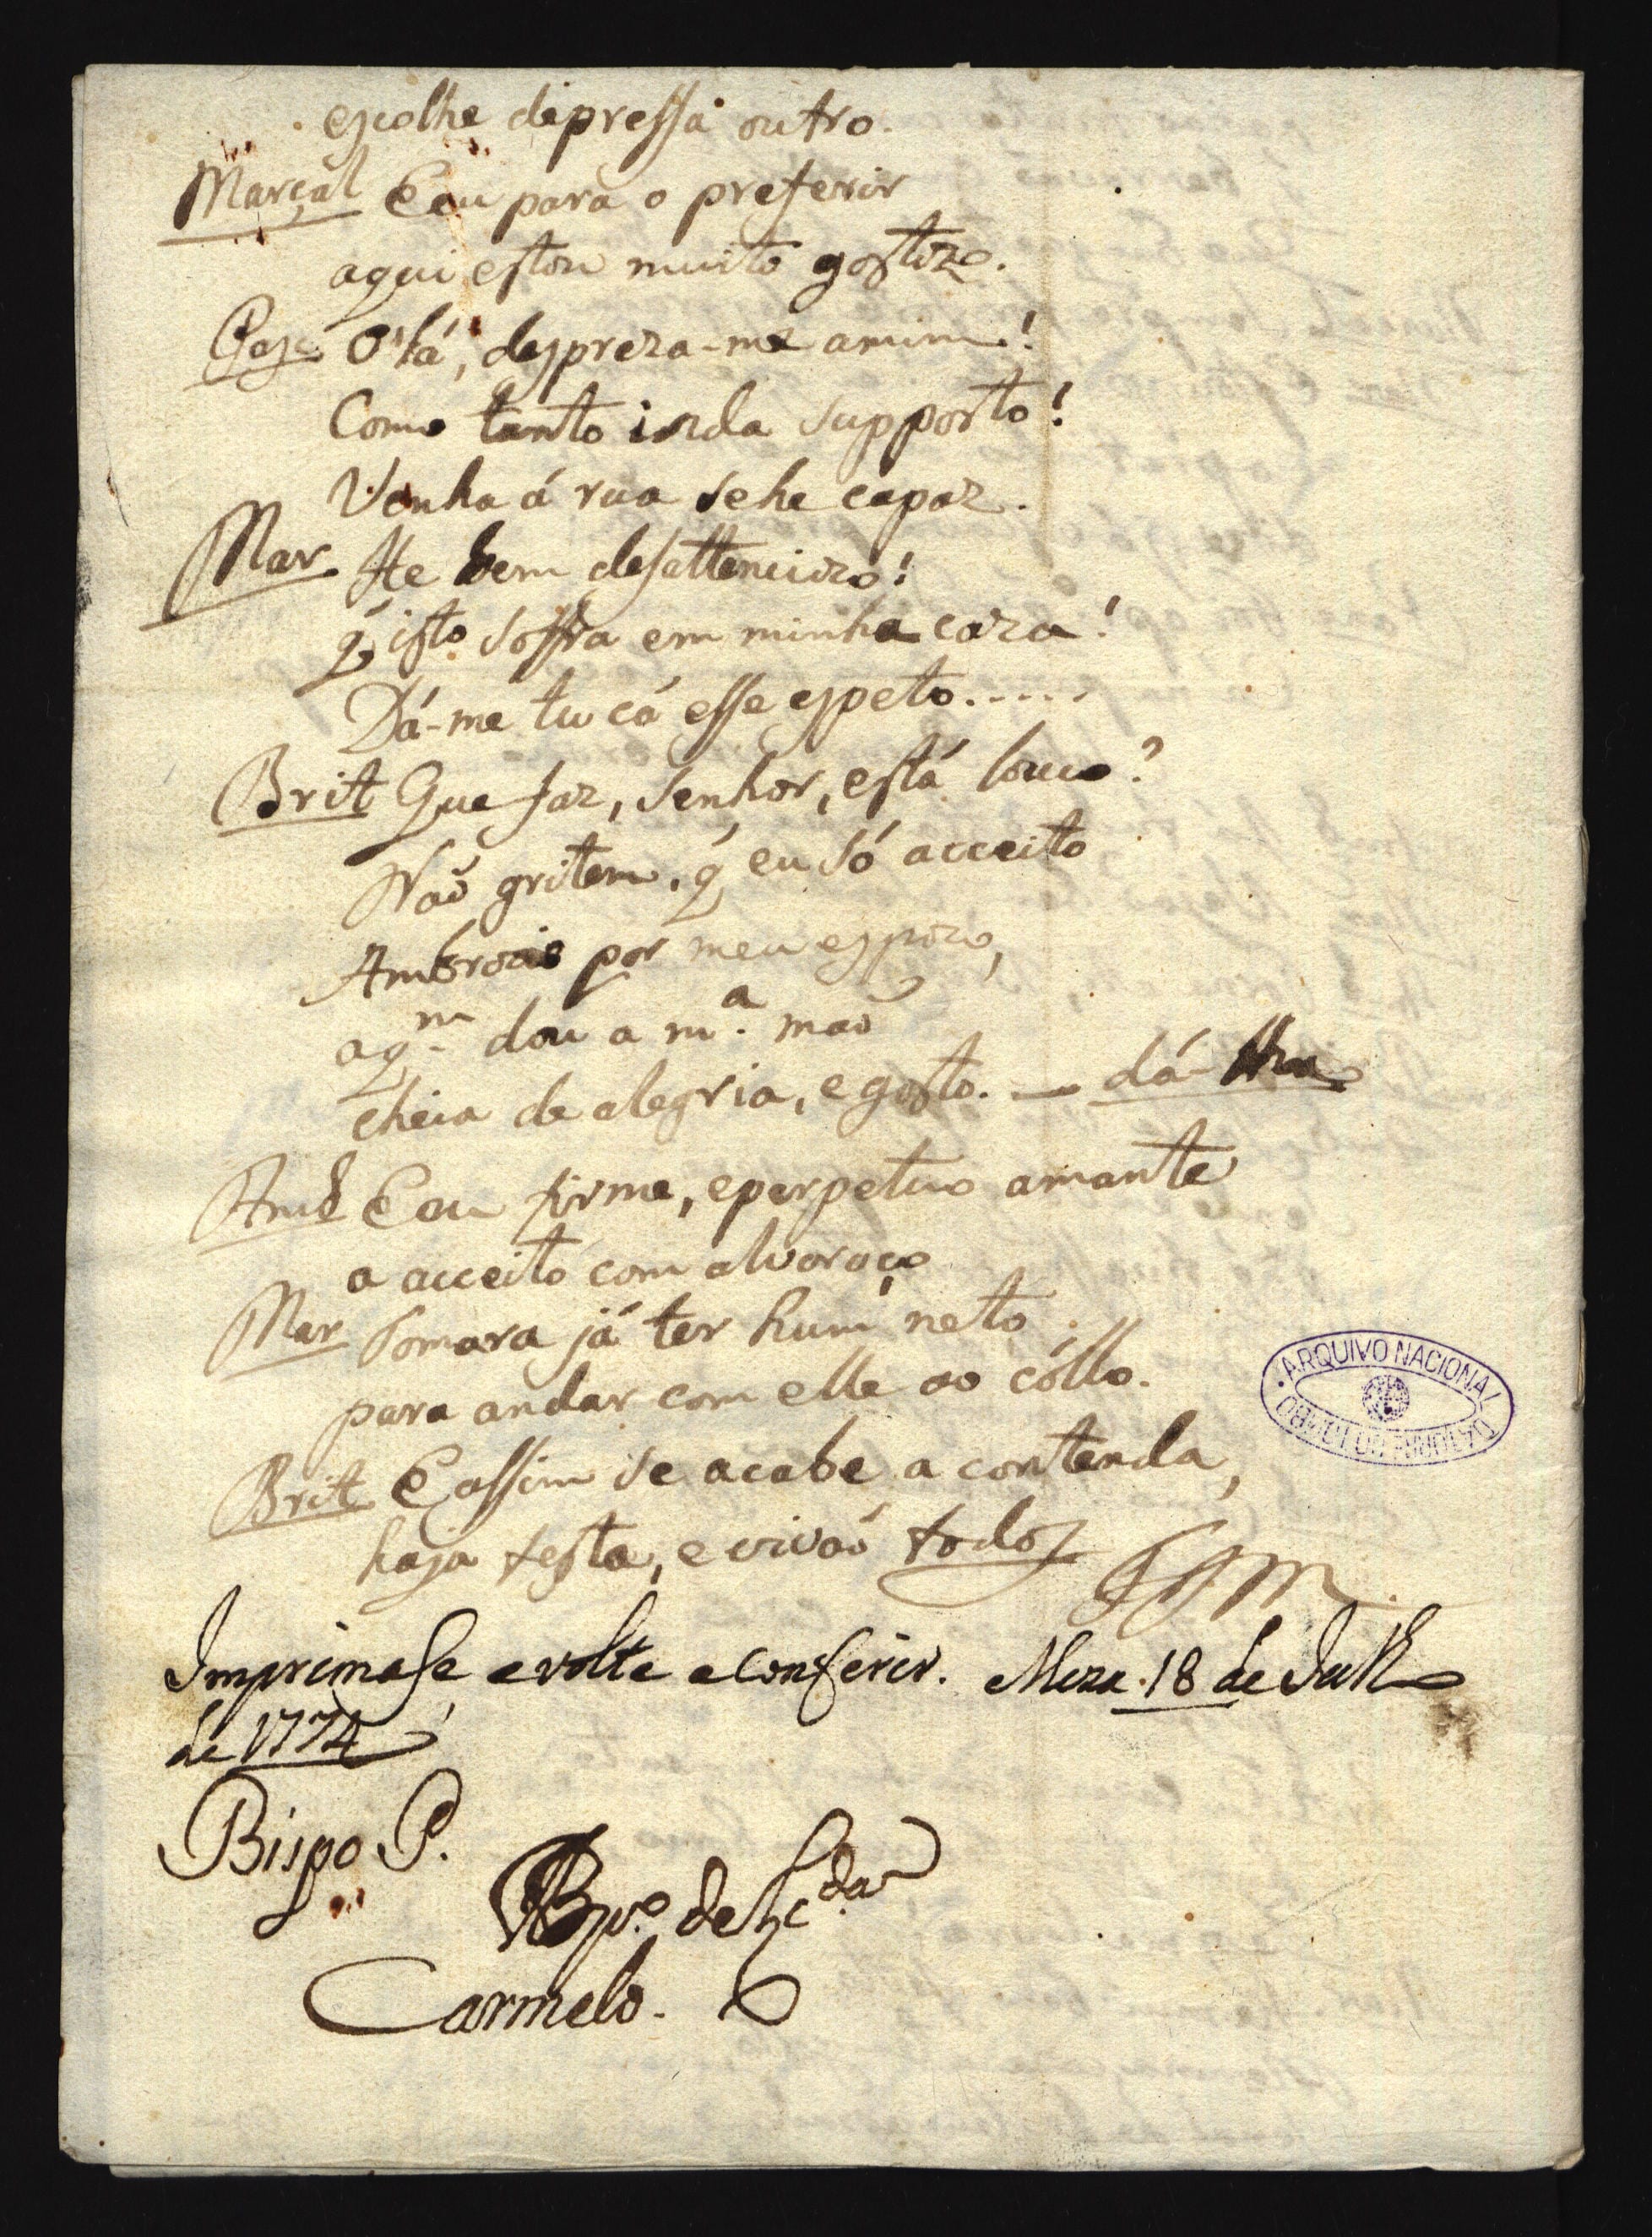 escolhe depressa outro.
Marçal E eu para o preferir
aqui estou muito gostozo.
O'lá, despreza-me amim!
Como tanto inda supporto!
Venha á rua se he capaz.
Mar He bem desattencioso!
q̃ isto soffra em minha caza!
Dá-me tu cá esse espeto.....
Brit Que faz, Senhor, está louco?
Naõ gritem, q̃ eu só acceito
Ambrozio por meu espozo,
a q.m dou a m.a maõ
cheia de alegria, e gosto. — dá-lha
Amb E eu firme, e perpetuo amante
a acceito com alvoroço
Mar Tomara já ter hum neto
para andar com elle ao cóllo.
Brit E assim se acabe a contenda,
haja festa, e vivaõ todos
FIM
Imprimase e volte a conferir. Meza 18 de Julho
de 1774
Bispo P.
de
Carmelo.
ARQUIVO NACIONAL DA TORRE DO TOMBO